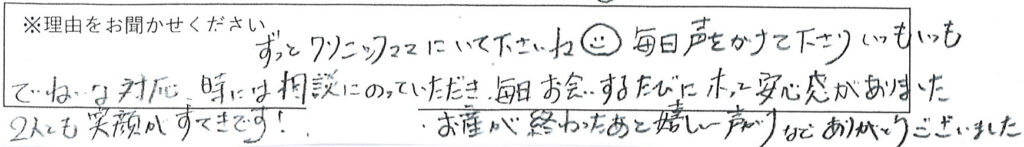 ※理由をお聞かせください
ずっとクリニックママにいて下さいね☺毎日声をかけて下さりいつもいつも
ていねいな対応、時には相談にのっていただき、毎日お会いするたびにホッと安心感がありました
2人とも笑顔がすてきです！ ・お産が終わったあと嬉しい声かけなどありがとうございました